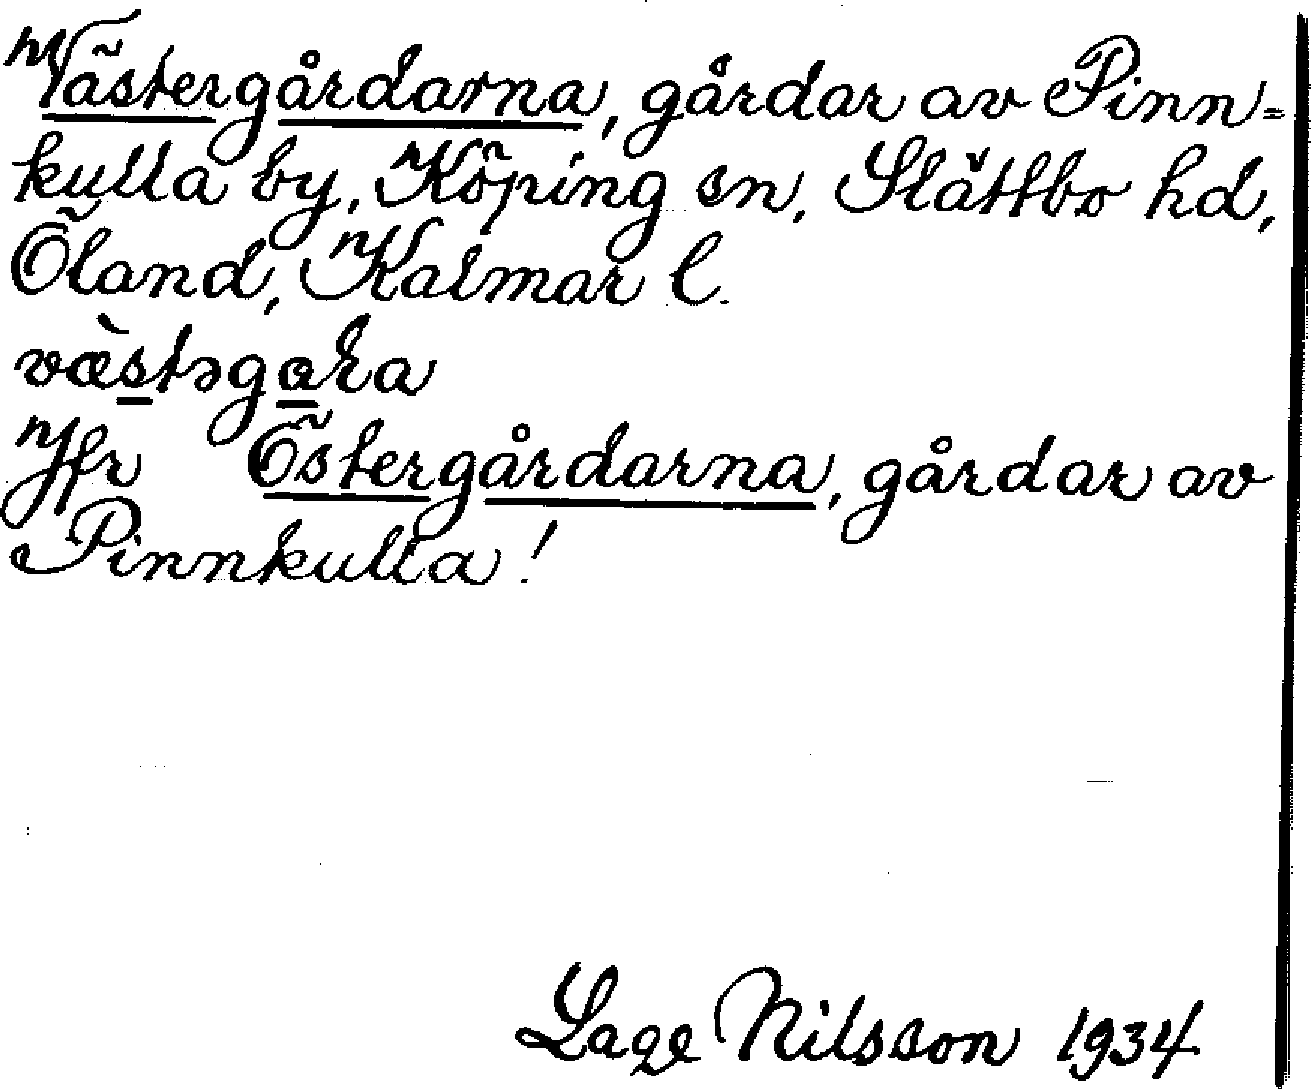 Västergårdarna, gårdar av Pinn-
kulla by, Köping sn, Slättbo hd,
Öland, Kalmar l.
væ̀stəgaka
Jfr Östergårdarna, gårdar av
Pinnkulla!
Lage Nilsson 1934